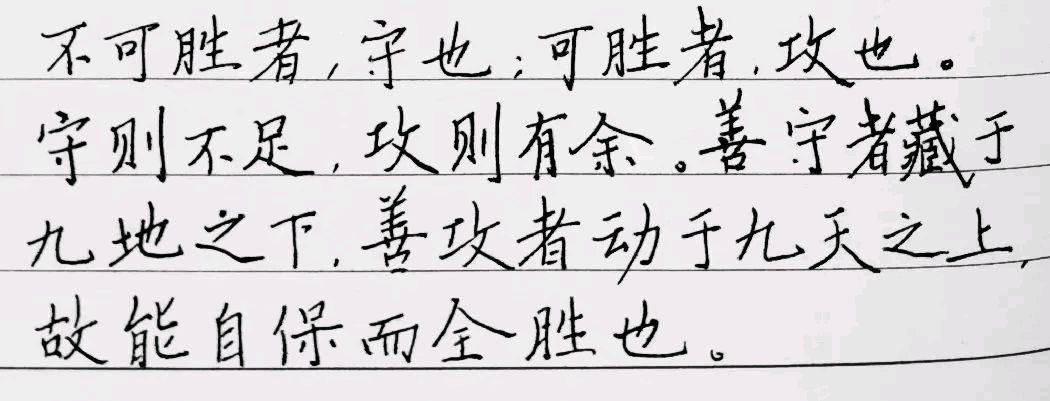 不可胜者,守也;可胜者,攻也。
守则不足,攻则有余。善守者藏于
九地之下,善攻者动于九天之上,
故能自保而全胜也。